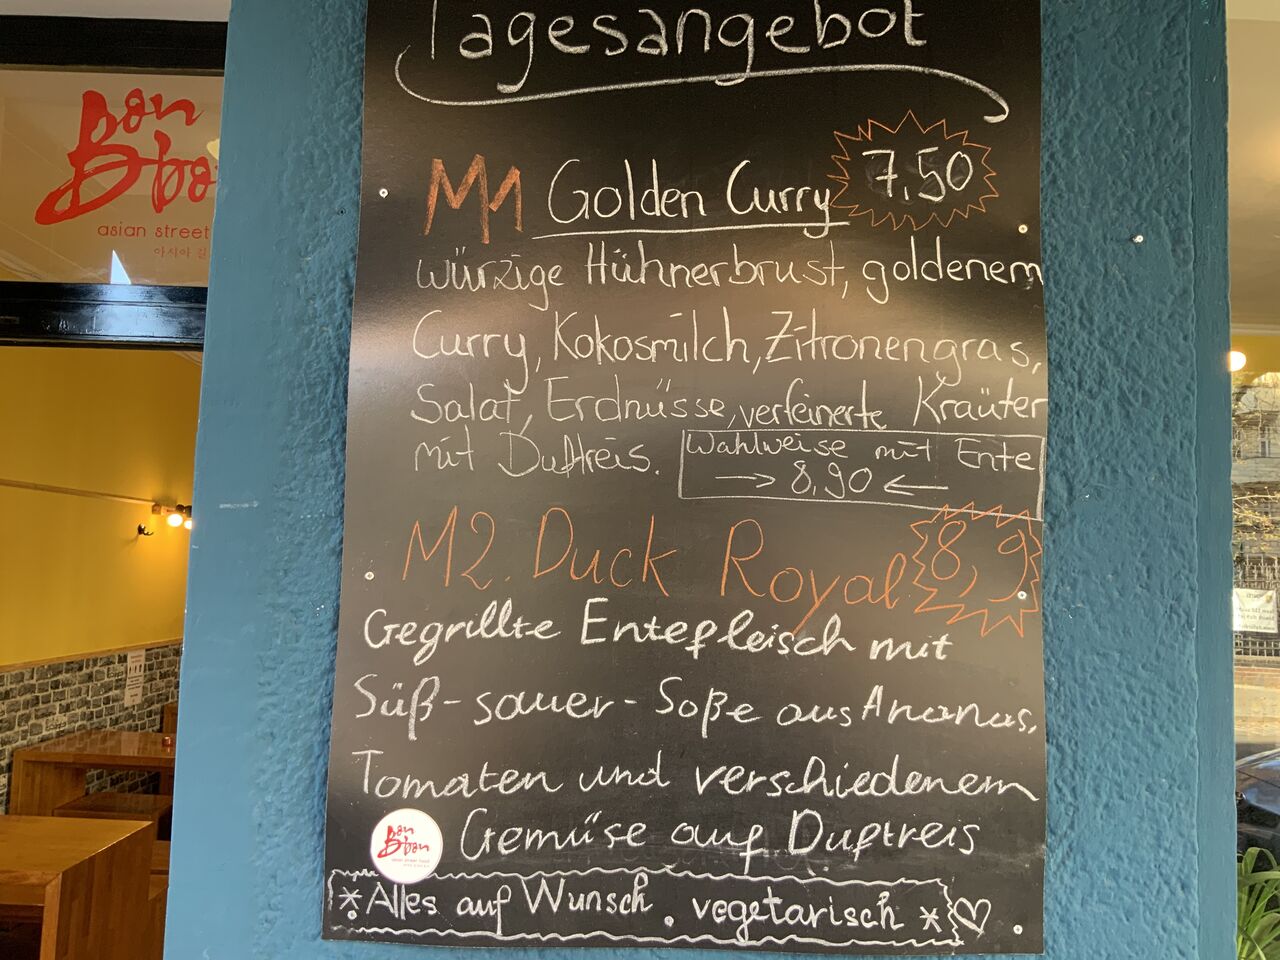 Tagesangebot
Bon
asian street
아시아 길
M1 Golden Curry 7,50
würzige Hühnerbrust, goldenem
Curry, Kokosmilch, Zitronengras,
Salat, Erdnüsse, verfeinerte Kräuter
mit Duftreis.
Wahlweise mit Ente
→ 8,90 ←
M2. Duck Royal 8,9
Gegrillte Entefleisch mit
Süß-sauer-Soße aus Ananas,
Tomaten und verschiedenem
Gemüse auf Duftreis
Bon
bon
asian street food
*Alles auf Wunsch, vegetarisch * ♡